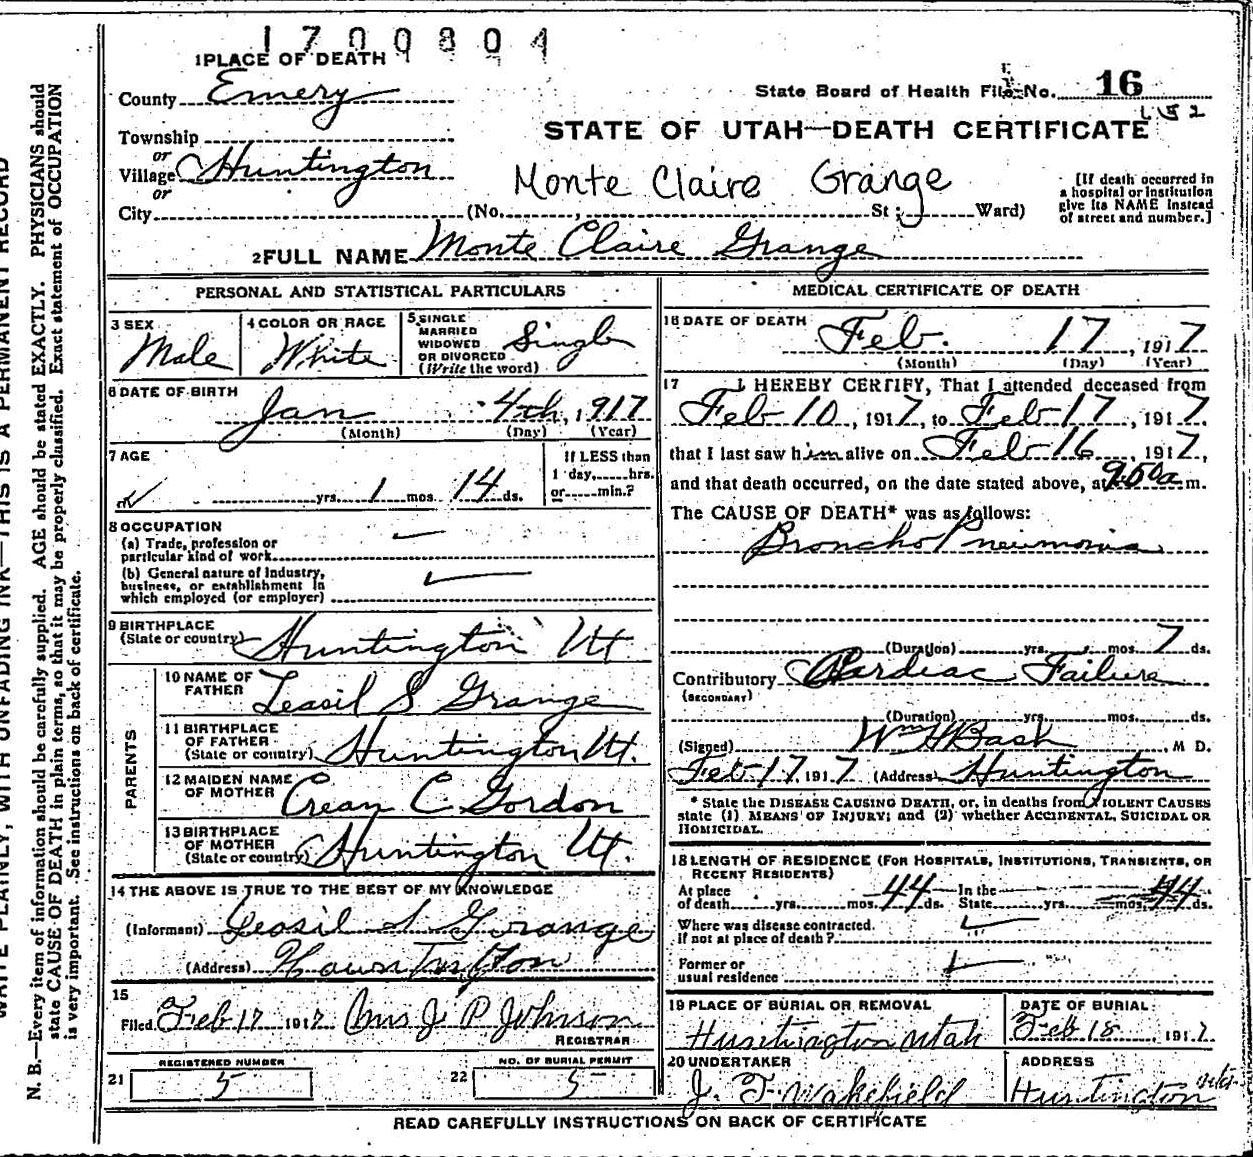 1700804
1 PLACE OF DEATH
County Emery
State Board of Health File No. 16
152
Township
or
STATE OF UTAH—DEATH CERTIFICATE
Village Huntington
or
Monte Claire Grange
[If death occurred in
a hospital or institution
give its NAME instead
of street and number.]
City (No. , St ; Ward)
2 FULL NAME Monte Claire Grange
PERSONAL AND STATISTICAL PARTICULARS
3 SEX
Male
4 COLOR OR RACE
White
5 SINGLE
MARRIED
WIDOWED
OR DIVORCED
(Write the word)
Single
6 DATE OF BIRTH
Jan 4th, 1917
(Month) (Day) (Year)
7 AGE
yrs. 1 mos 14 ds.
If LESS than
1 day, hrs.
or min.?
8 OCCUPATION
(a) Trade, profession or
particular kind of work
(b) General nature of Industry,
business, or establishment in
which employed (or employer)
9 BIRTHPLACE
(State or country) Huntington Ut
PARENTS
10 NAME OF
FATHER Leasil S Grange
11 BIRTHPLACE
OF FATHER
(State or country) Huntington Ut.
12 MAIDEN NAME
OF MOTHER Crean C Gordon
13 BIRTHPLACE
OF MOTHER
(State or country) Huntington Ut.
14 THE ABOVE IS TRUE TO THE BEST OF MY KNOWLEDGE
(Informant) Leasil S Grange
(Address) Hountington
15
Filed Feb 17 1917 Mrs J P Johnson
REGISTRAR
REGISTERED NUMBER
21 5
NO. OF BURIAL PERMIT
22 5
MEDICAL CERTIFICATE OF DEATH
16 DATE OF DEATH
Feb. 17, 1917
(Month) (Day) (Year)
17 I HEREBY CERTIFY, That I attended deceased from
Feb 10, 1917, to Feb 17, 1917.
that I last saw him alive on Feb 16, 1917,
and that death occurred, on the date stated above, at 9.50a m.
The CAUSE OF DEATH* was as follows:
Broncho Pneumonia
(Duration) yrs. mos. 7 ds.
Contributory Cardiac Failure
(SECONDARY)
(Duration) yrs. mos. ds.
(Signed) Wm H Bash, M D.
Feb 17 1917 (Address) Huntington
* State the DISEASE CAUSING DEATH, or, in deaths from VIOLENT CAUSES
state (1) MEANS OF INJURY; and (2) whether ACCIDENTAL, SUICIDAL OR
HOMICIDAL.
18 LENGTH OF RESIDENCE (FOR HOSPITALS, INSTITUTIONS, TRANSIENTS, OR
RECENT RESIDENTS)
At place
of death yrs. mos. 44 ds.
In the
State yrs. mos. 44 ds.
Where was disease contracted.
if not at place of death?
Former or
usual residence
19 PLACE OF BURIAL OR REMOVAL
Huntington Utah
DATE OF BURIAL
Feb 18, 1917
20 UNDERTAKER
J. F. Wakefield
ADDRESS
Huntington Utah
READ CAREFULLY INSTRUCTIONS ON BACK OF CERTIFICATE
WRITE PLAINLY, WITH UNFADING INK—THIS IS A PERMANENT RECORD
N. B.—Every item of information should be carefully supplied. AGE should be stated EXACTLY. PHYSICIANS should
state CAUSE OF DEATH in plain terms, so that it may be properly classified. Exact statement of OCCUPATION
is very important. See instructions on back of certificate.